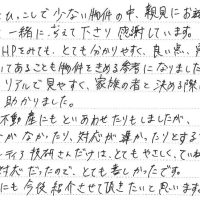 ひっこしで少ない物件の中、親身にお話
一緒に考えて下さり感謝しています。
HPをみても、とても分かりやすく、良い点、
いてあることも物件をきめる参考になりました
リアルで見やすく、家族の者と決める際
助かりました。
不動産にもといあわせたりもしましたが、
がなかったり、対応が遅かったりとする
ディア技研さんだけは、とてもやさしく、ていね
対応だったので、とても良しかったです。
にも今後紹介させて頂きたいと思います